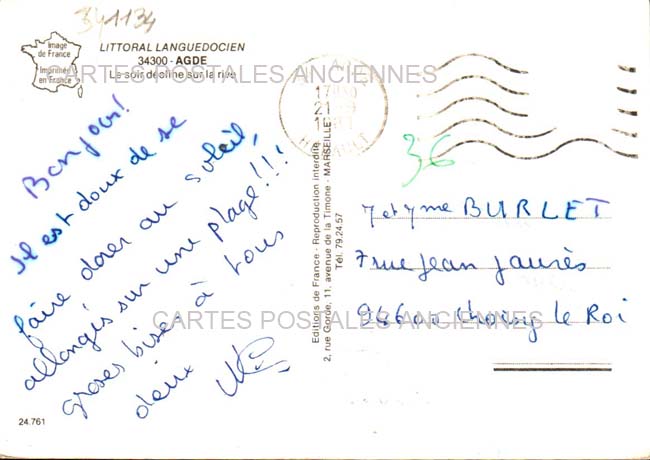 341134
Image
de France
Imprimée
en France
LITTORAL LANGUEDOCIEN
34300 - AGDE
Le soir décline sur la rive
CARTES POSTALES ANCIENNES
Bonjour!
Il est doux de se
faire dorer au soleil,
allongés sur une plage!!!
grosses bises à tous
deux
24.761
Editions de France - Reproduction interdite
2, rue Gordes, 11, avenue de la Timone - MARSEILLE
Tél. 79.24.57
17H30
21-9
HERAULT
36
M et Mme BURLET
7 rue Jean Jaurès
94600 Choisy le Roi
CARTES POSTALES ANCIENNES